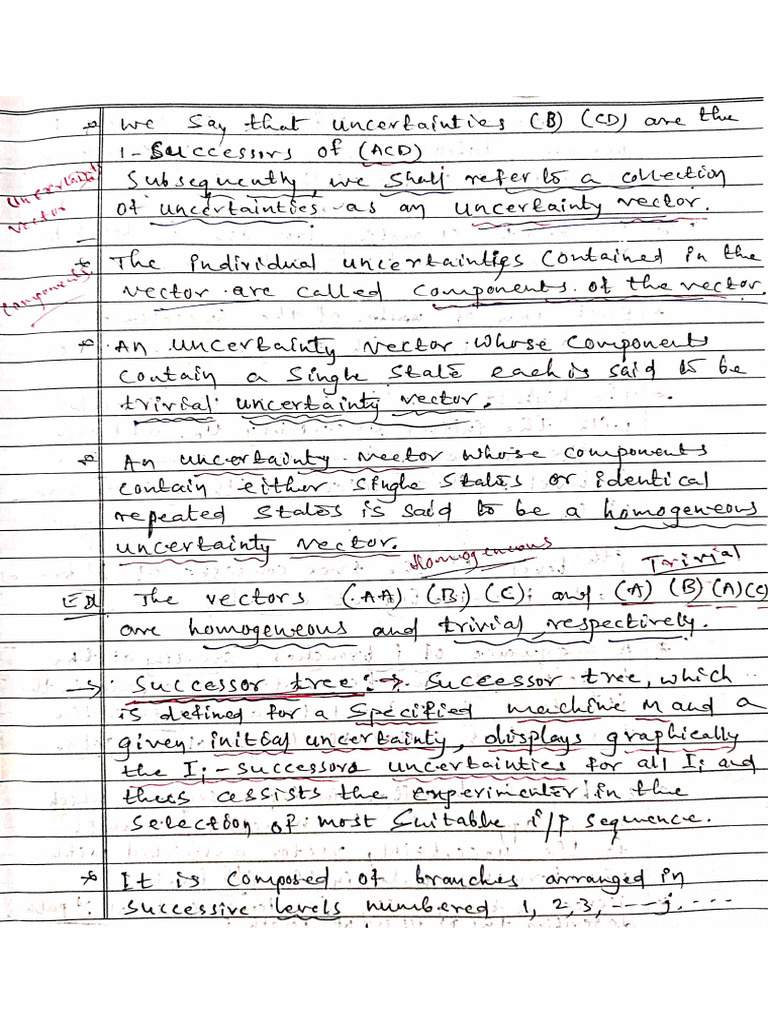 * We say that uncertainties (B) (CD) are the
1-Successors of (ACD)
Uncertainty
vector
Subsequently, we shall refer to a collection
of uncertainties as an uncertainty vector.
* The individual uncertainties contained in the
components
vector are called components of the vector.
* An uncertainty vector whose components
contain a single state each is said to be
trivial uncertainty vector.
* An uncertainty vector whose components
contain either single states or identical
repeated states is said to be a homogeneous
uncertainty vector.
Homogeneous Trivial
The vectors (AA) (B) (C); and (A) (B) (A) (C)
are homogeneous and trivial, respectively.
→ Successor tree :→ Successor tree, which
is defined for a specified machine M and a
given initial uncertainty, displays graphically
the Ii-successors uncertainties for all Ii and
thus assists the experimenter in the
selection of most suitable i/p sequence.
* It is composed of branches arranged in
successive levels numbered 1, 2, 3, ----j, ----